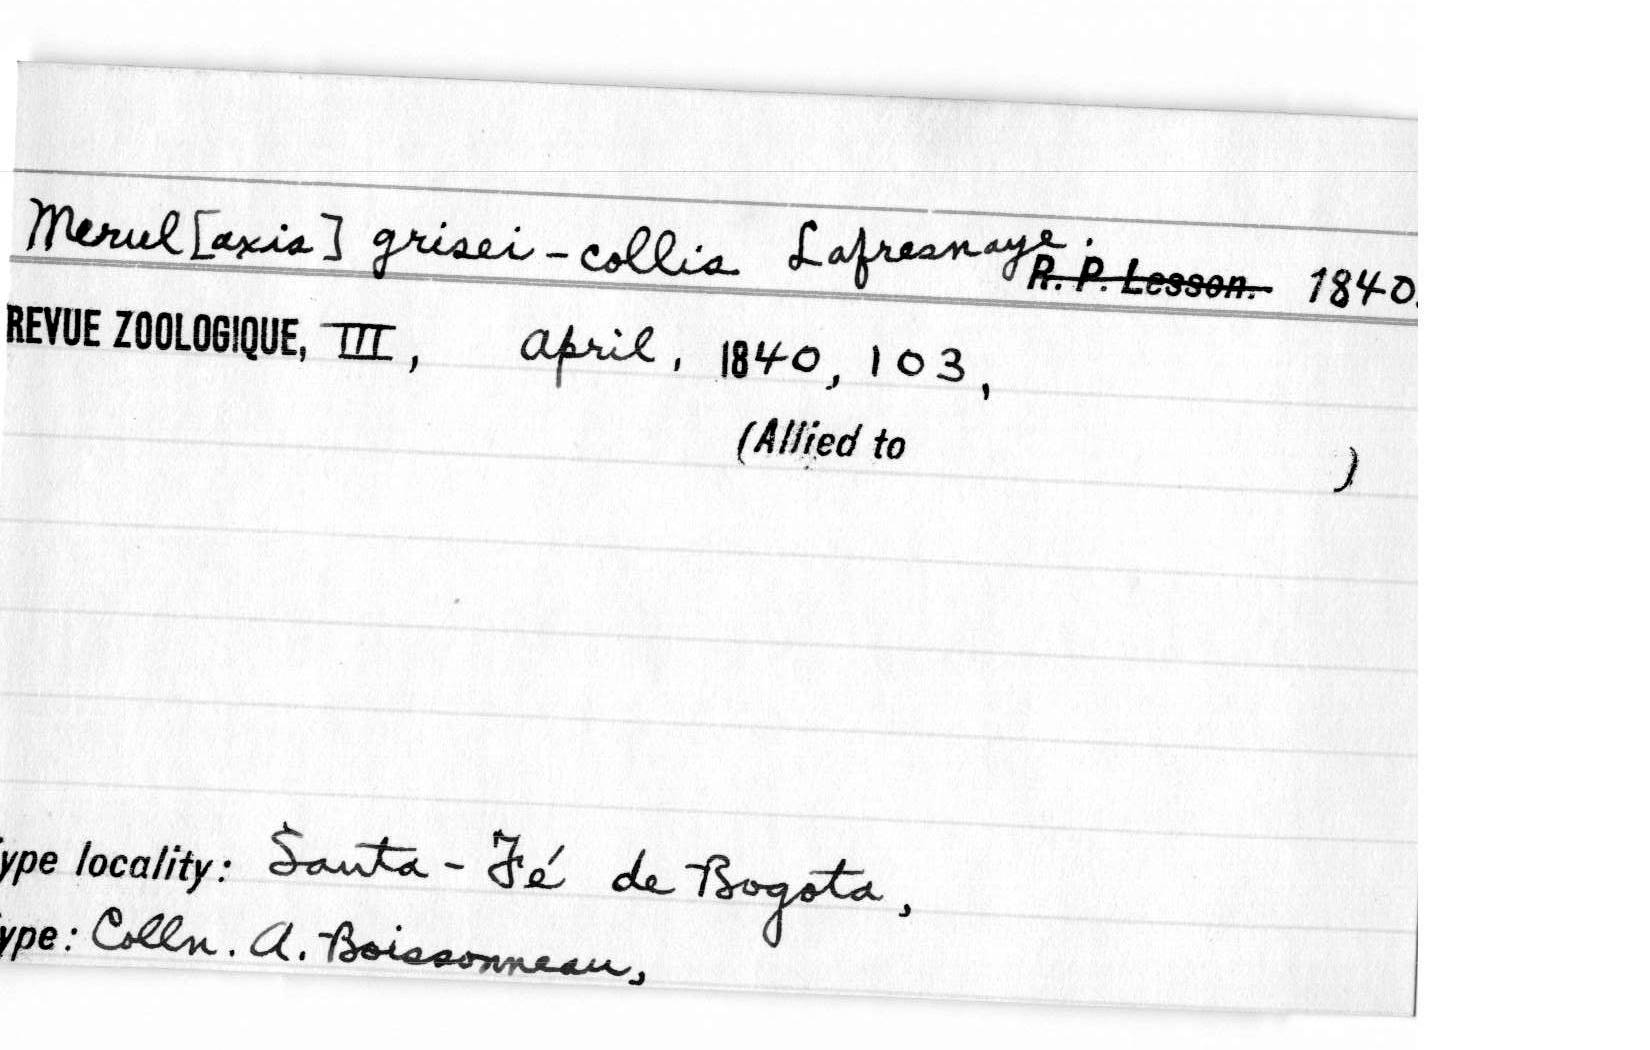 Merul[axis] grisei-collis Lafresnaye. R. P. Lesson. 1840.
REVUE ZOOLOGIQUE, III, April, 1840, 103,
(Allied to )
ype locality: Santa-Fé de Bogota,
ype: Colln. A. Boissonneau,